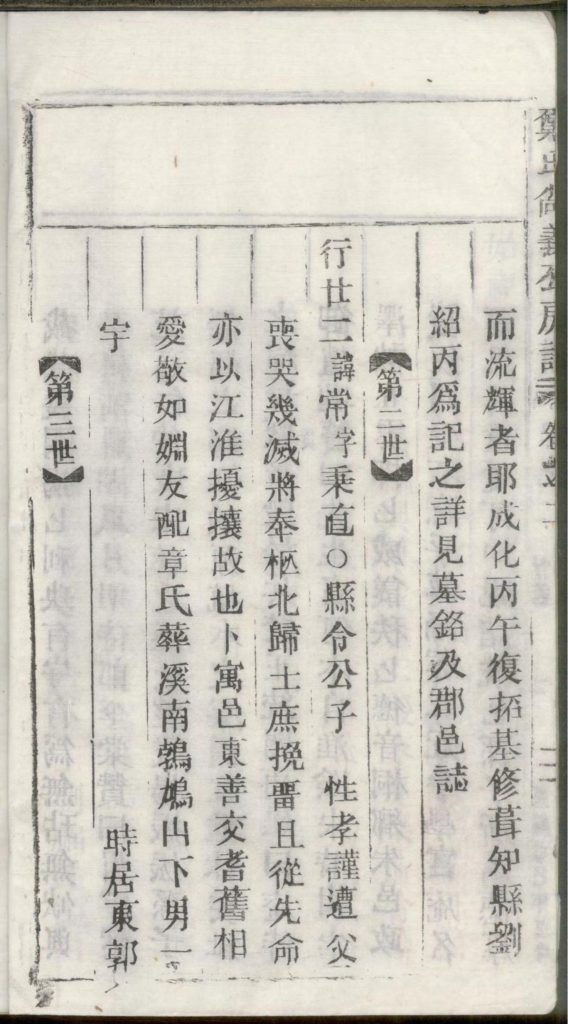 而流輝者耶成化丙午復拓基修葺知縣劉
紹丙爲記之詳見墓銘及郡邑誌
【第二世】
行廿一諱常字秉直○縣令公子 性孝謹遭父
喪哭幾滅將奉柩北歸士庶挽畱且從先命
亦以江淮擾攘故也卜寓邑東善交耆舊相
愛敬如婣友配章氏葬溪南鵓鳩山下男一
宇 時居東郭
【第三世】